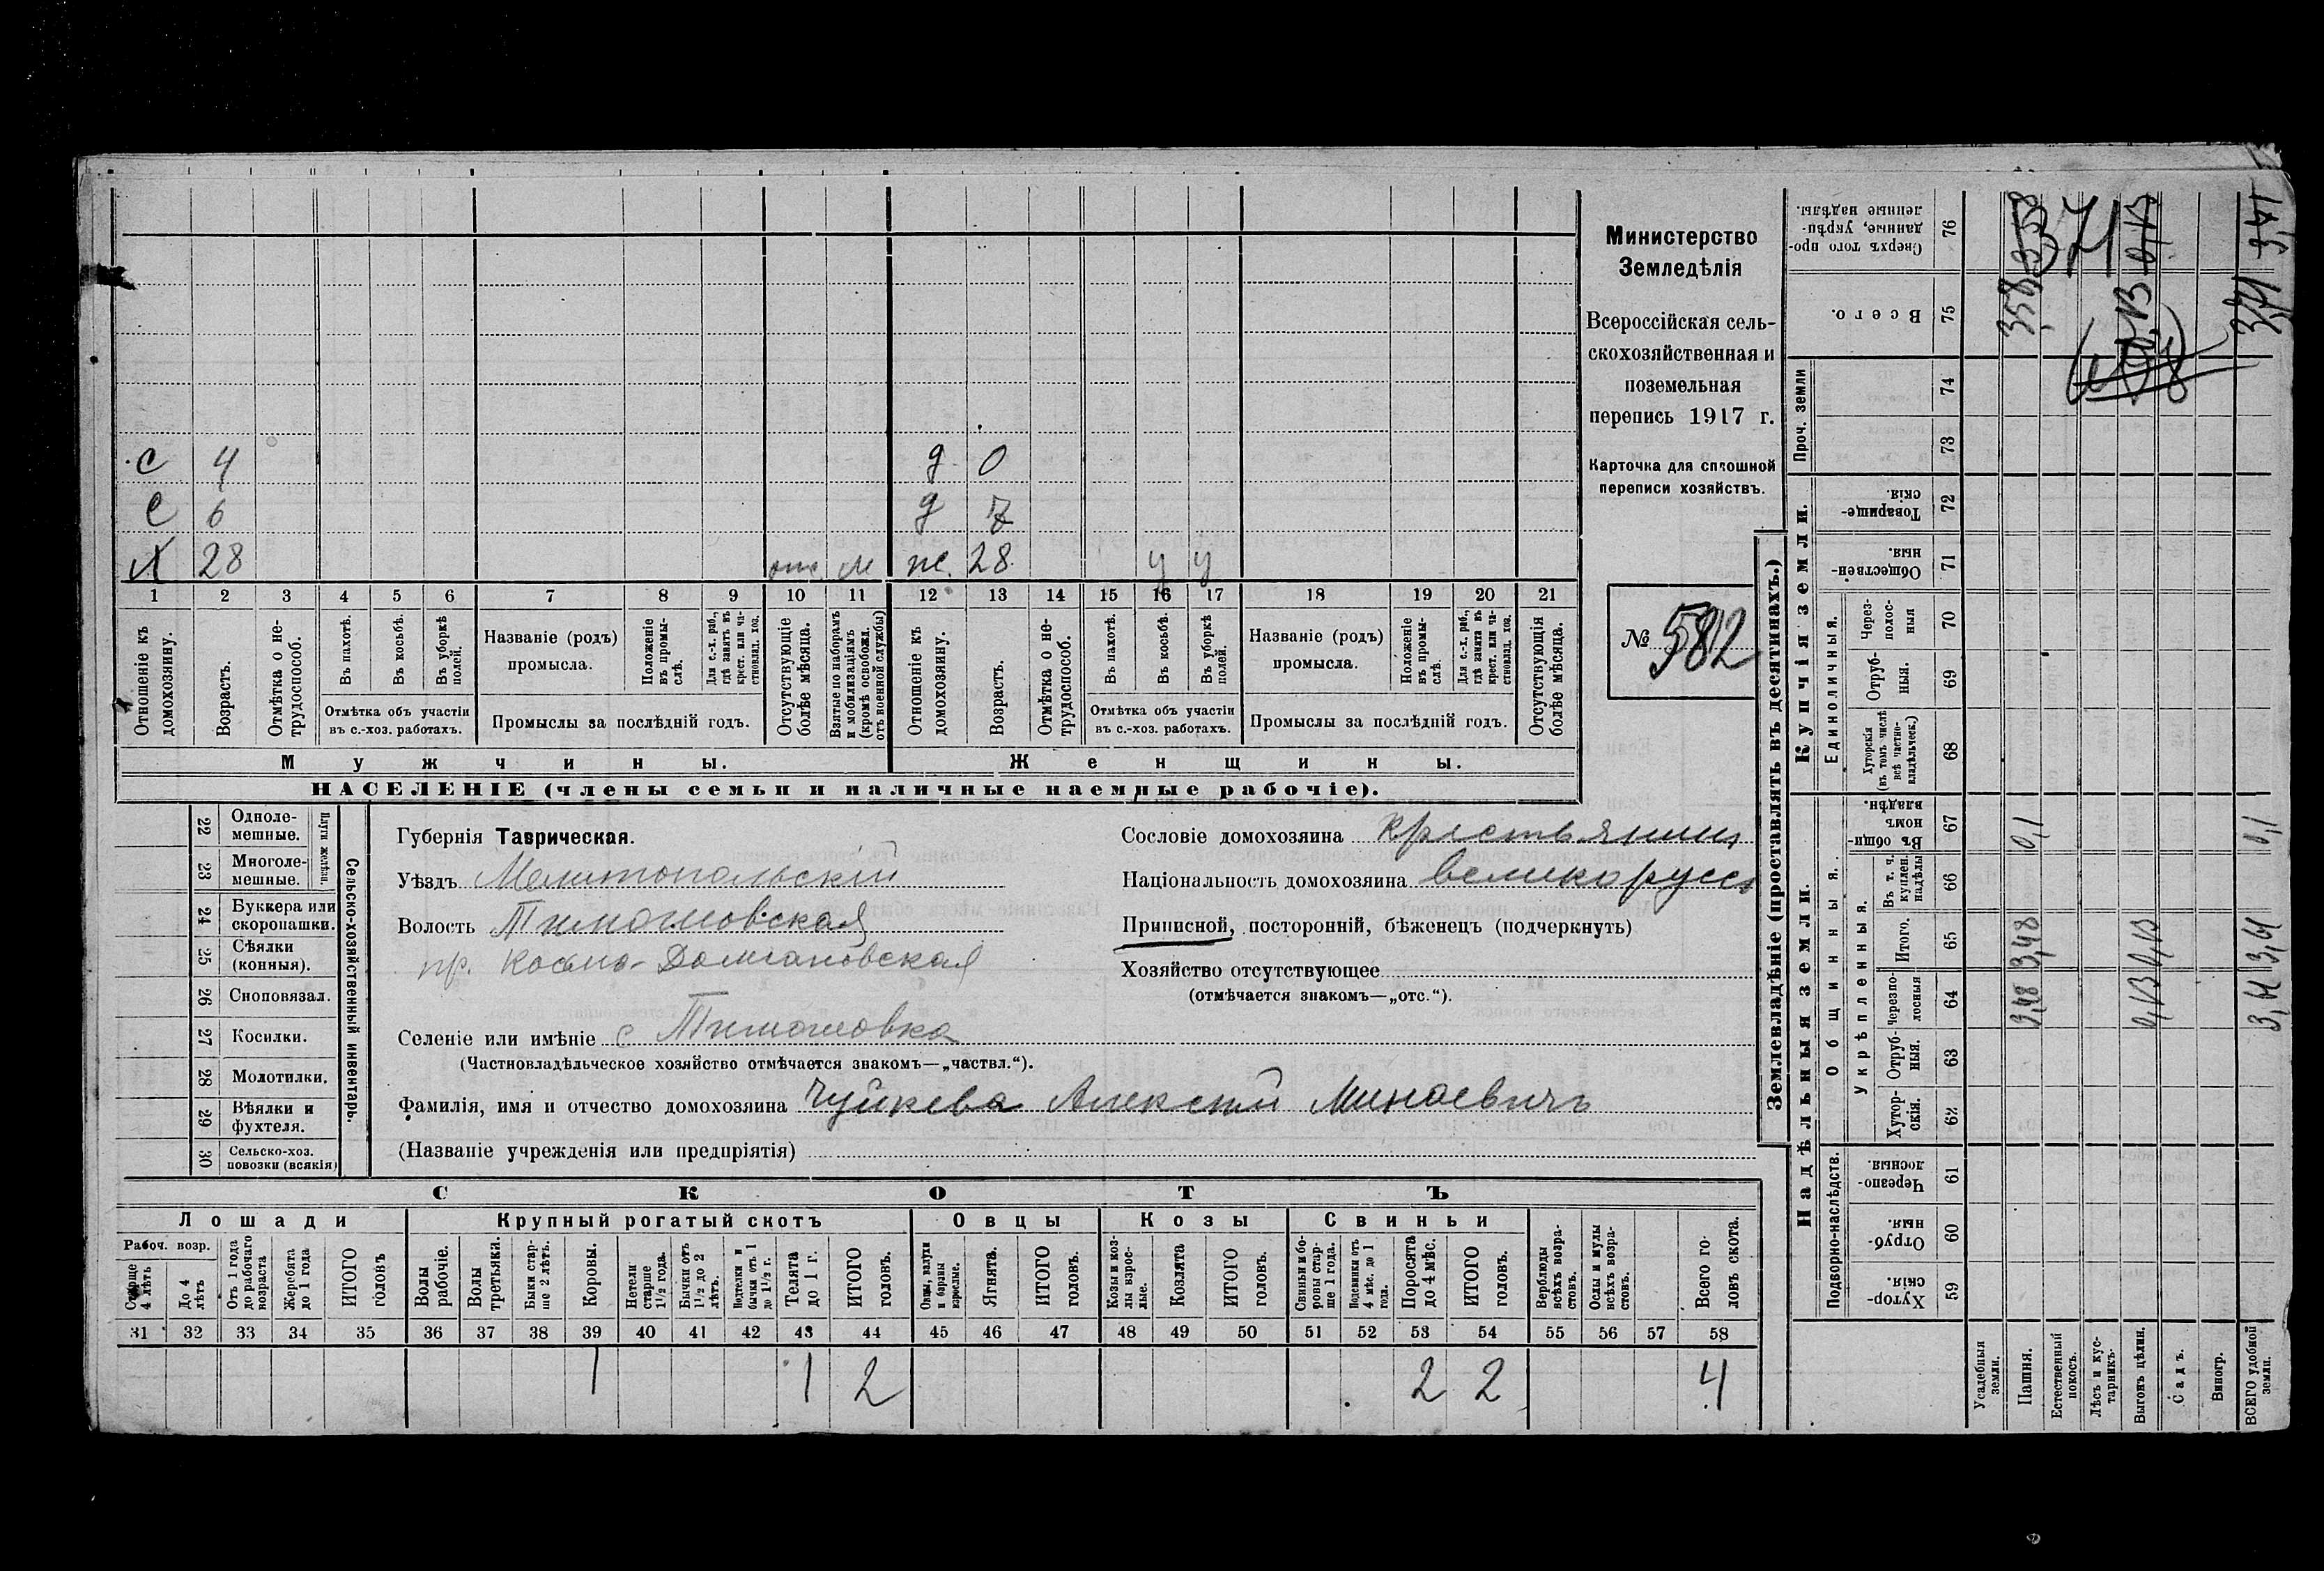 с 4 д 0
с 6 д 7
х 28 отс. м ж. 28 у у
1 2 3 4 5 6 7 8 9 10 11 12 13 14 15 16 17 18 19 20 21
Отношеніе къ домохозяину.
Возрастъ.
Отмѣтка о нетрудоспособ.
Въ пахотѣ.
Въ косьбѣ.
Въ уборкѣ полей.
Отмѣтка объ участіи
въ с.-хоз. работахъ.
Названіе (родъ)
промысла.
Положеніе въ промыслѣ.
Для с.-х. раб., гдѣ занятъ въ крест. или частновлад. хоз.
Промыслы за послѣдній годъ.
Отсутствующіе болѣе мѣсяца.
Взятые по наборамъ и мобилизаціямъ (кромѣ освобожд. отъ военной службы)
Отношеніе къ домохозяину.
Возрастъ.
Отмѣтка о нетрудоспособ.
Въ пахотѣ.
Въ косьбѣ.
Въ уборкѣ полей.
Отмѣтка объ участіи
въ с.-хоз. работахъ.
Названіе (родъ)
промысла.
Положеніе въ промыслѣ.
Для с.-х. раб., гдѣ занята въ крест. или частновлад. хоз.
Промыслы за послѣдній годъ.
Отсутствующія болѣе мѣсяца.
Мужчины. Женщины.
НАСЕЛЕНІЕ (члены семьи и наличные наемные рабочіе).
Министерство
Земледѣлія
Всероссійская сель-
скохозяйственная и
поземельная
перепись 1917 г.
Карточка для сплошной
переписи хозяйствъ.
№ 582
22 Одноле-
мешные.
23 Многоле-
мешные.
Плуги желѣзн.
24 Буккера или
скоропашки.
25 Сѣялки
(конныя).
26 Сноповязал.
27 Косилки.
28 Молотилки.
29 Вѣялки и
фухтеля.
30 Сельско-хоз.
повозки (всякія)
Сельско-хозяйственный инвентарь.
Губернія Таврическая.
Уѣздъ Мелитопольскій
Волость Тимошовская
пр. Космо-Домиановская
Селеніе или имѣніе с Тимошовка
(Частновладѣльческое хозяйство отмѣчается знакомъ—„частвл.“).
Сословіе домохозяина Крестьянинъ
Національность домохозяина великоруссъ
Приписной, посторонній, бѣженецъ (подчеркнуть)
Хозяйство отсутствующее
(отмѣчается знакомъ—„отс.“).
Фамилія, имя и отчество домохозяина Чуйкева Алексѣй Минаевичъ
(Названіе учрежденія или предпріятія)
СКОТЪ
Лошади Крупный рогатый скотъ Овцы Козы Свиньи
Рабоч. возр.
Старше 4 лѣтъ
До 4 лѣтъ
Отъ 1 года до рабочаго возраста
Жеребята до 1 года
ИТОГО головъ
Волы рабочіе.
Волы третьяки.
Быки старше 2 лѣтъ.
Коровы.
Нетели старше 1½ года.
Бычки отъ 1½ до 2 лѣтъ.
Подтелки и бычки отъ 1 до 1½ г.
Телята до 1 г.
ИТОГО головъ.
Овцы, валухи и бараны взрослые.
Ягнята.
ИТОГО головъ.
Козы и козлы взрослые.
Козлята
ИТОГО головъ.
Свиньи и боровы старше 1 года.
Подсвинки отъ 4 мѣс. до 1 года.
Поросята до 4 мѣс.
ИТОГО головъ.
Верблюды всѣхъ возрастовъ.
Ослы и мулы всѣхъ возрастовъ.
Всего головъ скота.
31 32 33 34 35 36 37 38 39 40 41 42 43 44 45 46 47 48 49 50 51 52 53 54 55 56 57 58
1 1 2 2 2 4
Землевладѣніе (проставлять въ десятинахъ.)
Надѣльныя земли. Купчія земли. Проч. земли
Подворно-наслѣдств.
Общинныя.
Укрѣпленныя.
Единоличныя.
Хуторскія. 59
Отрубныя. 60
Черезполосныя. 61
Хуторскія. 62
Отрубныя. 63
Черезполосныя 64
Итого. 65
Въ т. ч. куплен. надѣлы 66
Въ общинномъ владѣн. 67
Хуторскія (въ томъ числѣ всѣ частновладѣльческ.) 68
Отрубныя. 69
Черезполосныя 70
Общественныя. 71
Товарищескія. 72
73
74
Всего. 75
Сверхъ того проданные, укрѣпленные надѣлы. 76
Усадебныя земли.
Пашня. 3,48 3,48 0,1 3,58
Естественный покосъ.
Лѣсъ и кустарникъ.
Выгонъ цѣлин. 0,13 0,13 0,13
Садъ.
Виногр.
ВСЕГО удобной земли. 3,61 3,61 0,1 3,71
371